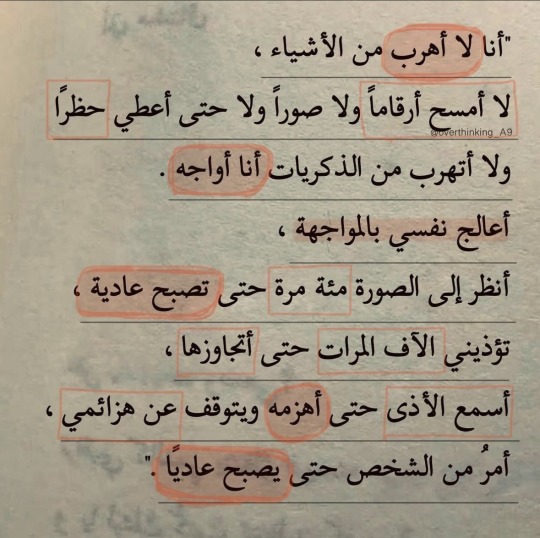 "أنا لا أهرب من الأشياء ،
لا أمسح أرقاماً ولا صوراً ولا حتى أعطي حظرًا
@overthinking_A9
ولا أتهرب من الذكريات أنا أواجه .
أعالج نفسي بالمواجهة ،
أنظر إلى الصورة مئة مرة حتى تصبح عادية ،
تؤذيني الآف المرات حتى أتجاوزها ،
أسمع الأذى حتى أهزمه ويتوقف عن هزائمي ،
أمرُ من الشخص حتى يصبح عاديًا ."